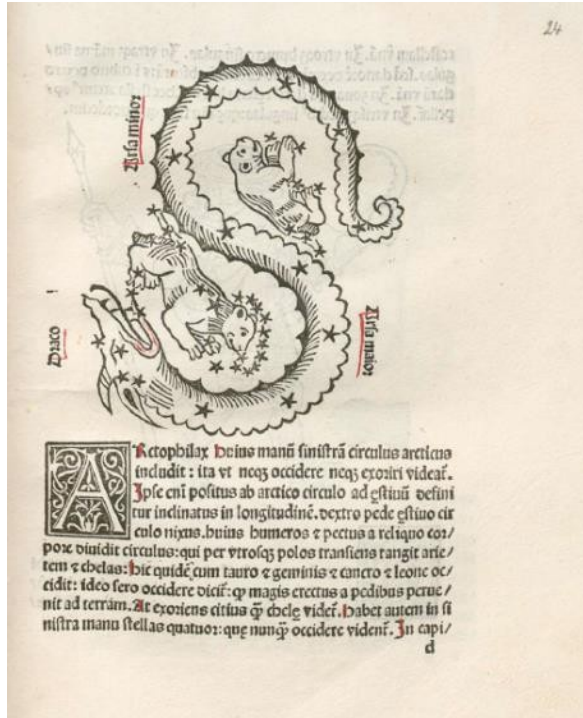 24
Ursa minor
Draco
Ursa maior
ARctophilax huius manū sinistrā circulus arcticus
includit : ita vt neqȝ occidere neqȝ exoriri videat᷑.
Ipse eni᷑ positus ab arctico circulo ad ęstiuū defini
tur inclinatus in longitudinē. dextro pede ęstiuo cir
culo nixus. huius humeros ⁊ pectus a reliquo cor/
pore diuidit circulus: qui per vtrosqȝ polos transiens tangit arie/
tem ⁊ chelas: hic quidē cum tauro ⁊ geminis ⁊ cancro ⁊ leone oc/
cidit: ideo sero occidere dicit᷑: ꝙ magis erectus a pedibus perue/
nit ad terram. At exoriens citius ꝙ̄ chelę videt᷑. Habet autem in si
nistra manu stellas quatuor: quę nunꝙ̄ occidere vident᷑. In capi/
d